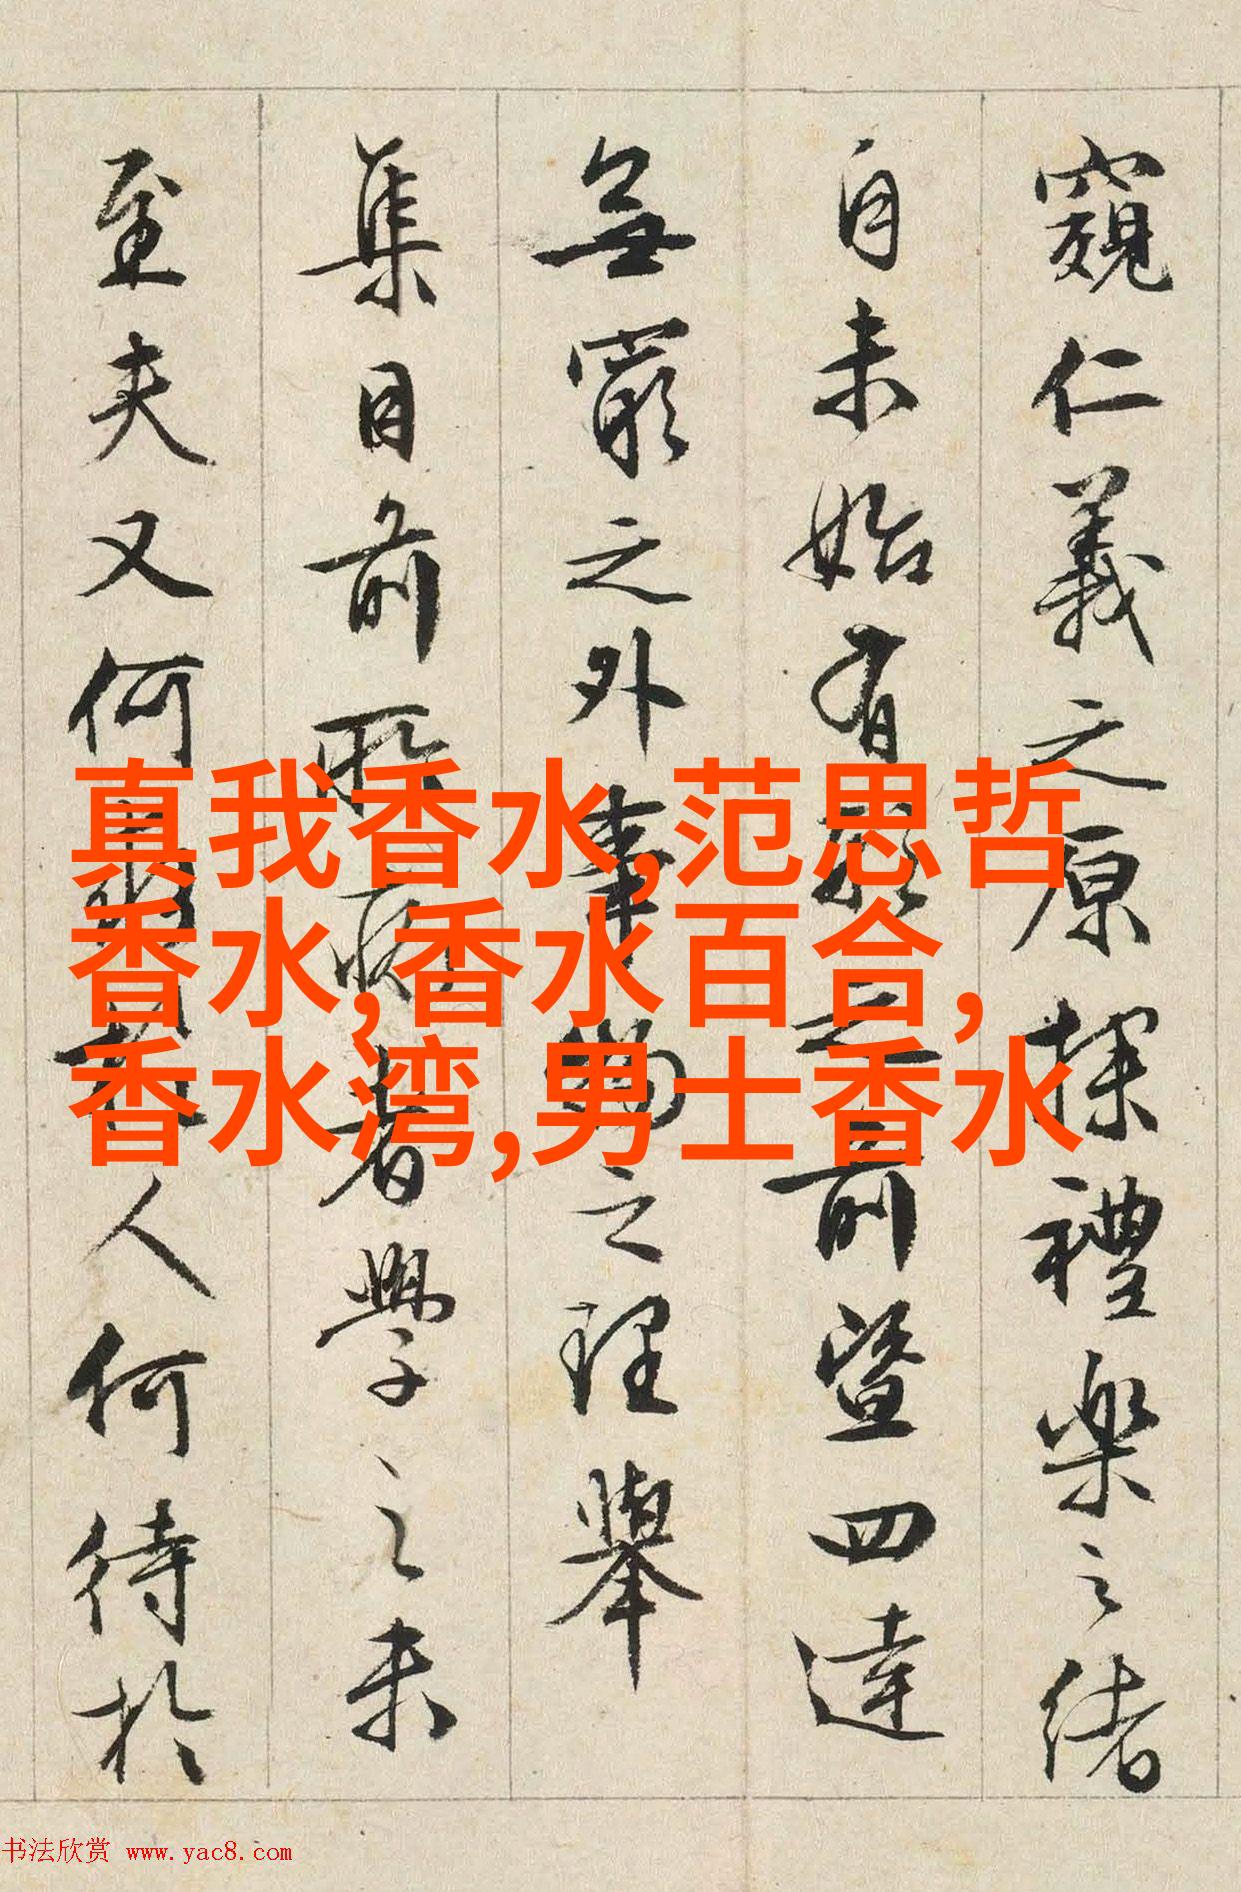 窺仁義之原探禮樂之緒
自未始有之前暨四達
無窮之外事物之理舉
集目前所病者學之未
至夫又何人何待於
真我香水,范思哲
香水,香水百合,
香水湾,男士香水
书法欣赏 www.yac8.com